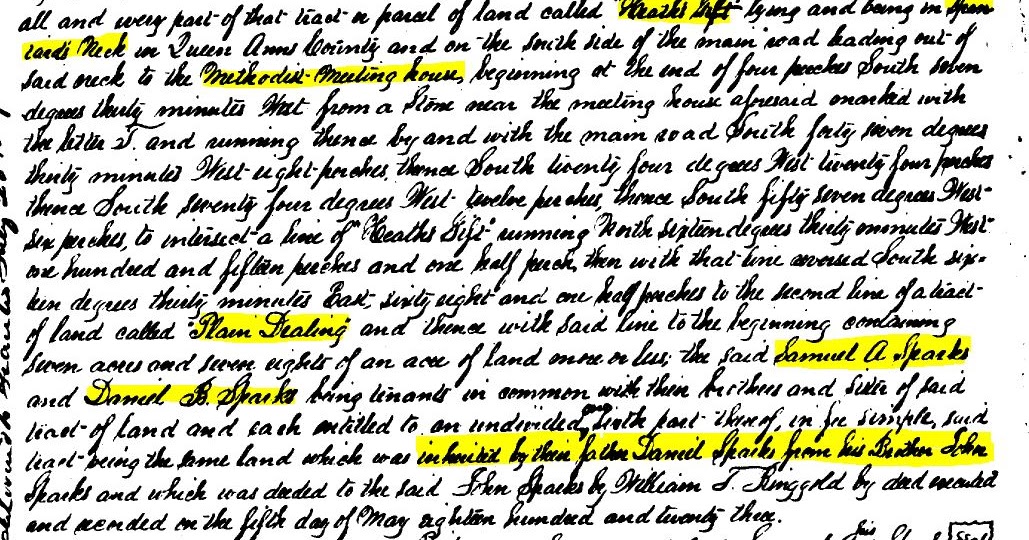 all and every part of that tract or parcel of land called "Heaths Gift" lying and being in Span-
iards Neck in Queen Anns County and on the south side of the main road leading out of
said neck to the Methodist Meeting house, beginning at the end of four perches South seven
degrees thirty minutes West from a Stone near the meeting house aforesaid marked with
the letter T. and running thence by and with the main road South forty seven degrees
thirty minutes West eight perches, thence South twenty four degrees West twenty four perches
thence South seventy four degrees West twelve perches, thence South fifty seven degrees West
six perches, to intersect a line of "Heaths Gift" running North sixteen degrees thirty minutes West
one hundred and fifteen perches and one half perch, then with that line reversed South six=
teen degrees thirty minutes East, sixty eight and one half perches to the second line of a tract
of land called "Plain Dealing" and thence with said line to the beginning containing
seven acres and seven eights of an acre of land more or less; the said Samuel A Sparks
and Daniel B. Sparks being tenants in common with their brothers and sister of said
tract of land and each entitled to an undivided one sixth part thereof, in fee simple, said
tract being the same land which was inherited by their father Daniel Sparks from his Brother John
Sparks and which was deeded to the said John Sparks by William T. Ringgold by deed executed
and recorded on the fifth day of May eighteen hundred and twenty three.
his